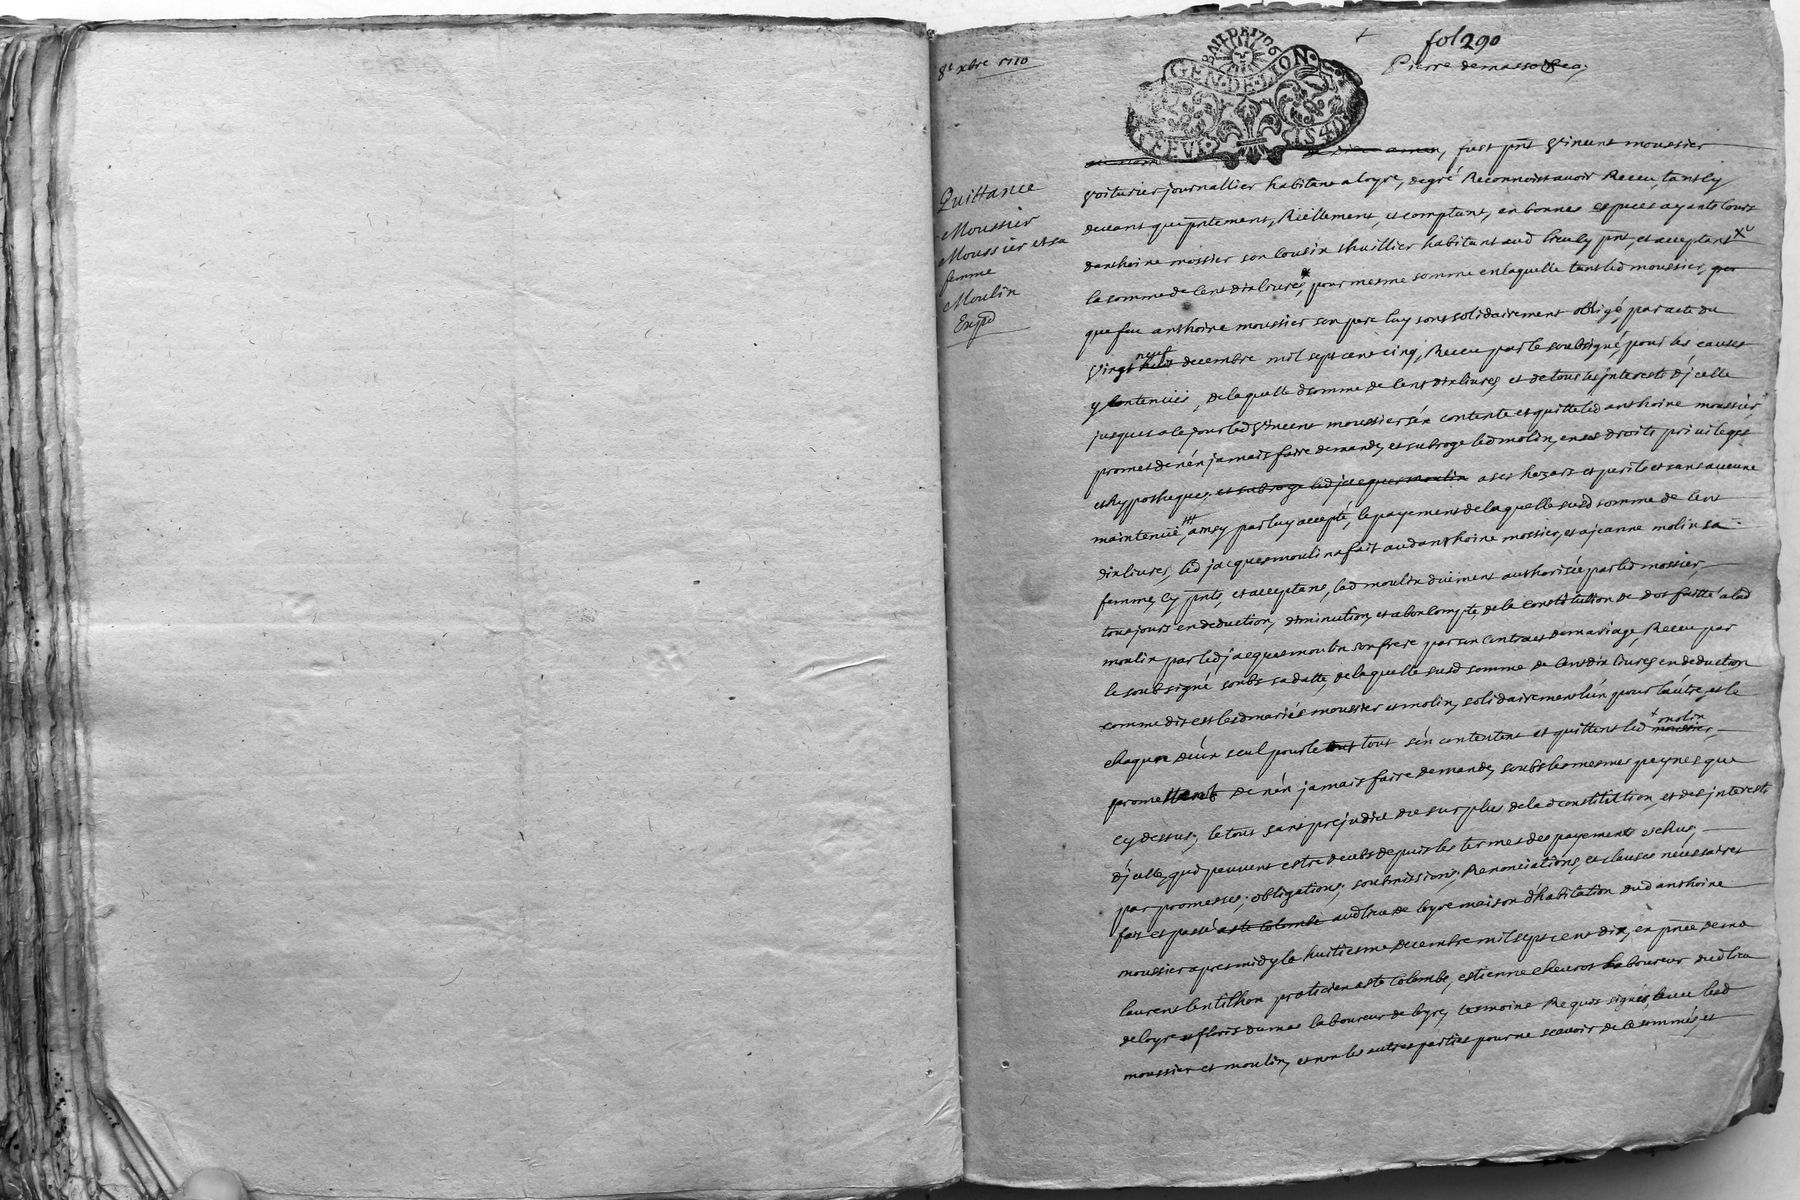 8e xbre 1710
fol 290
Pierre demasso
BNI DE 1706
GEN·DE·LION
FEVI
1540
Quittance
Moussier
Moussier et sa
femme
Moulin
Exped
amen, fust pnt Vincent moussier
Voiturier journallier habitant a loyre, degré Reconnoist avoir Receu, tant cy
devant que pntement, Réellement, et comptant, en bonnes espuces ayants cours
danthoine mossier son cousin thuillier habitant aud lieu cy pnt, et acceptant
la somme de cent dix livres, pour mesme somme en laquelle tant led moussier,
que feu anthoine moussier son pere luy sont solidairement obligé, par acte du
Vingt neuf decembre mil sept cent cinq, Receu par le soubsigné, pour les causes
y contenues, de laquelle d somme de cent dix livres, et de tous les jnterests djcelle
jusques a ce jour led Vincent moussier sén contente et quitte led anthoine moussier
promet de nén jamais faire demande, et subroge led molin, en ses droits privileges
et hypotheques, et subroge led jacques moulin a ses hazars et perils et sans aucune
maintenüe, ainsy par luy accepté, le payement de laquelle susd somme de cent
dix livres, led jacques moulin a fait aud anthoine mossier, et a jeanne molin sa
femme, cy pnts, et acceptans, lad moulin düement authorisée par led mossier,
tousjours en deduction, diminution, et a bon compte, de la constitution de dot faitte a lad
moulin par led jacques moulin son frere par son contract de mariage, Receu par
le soubsigné soubs sa datte, de laquelle susd somme de cent dix livres, en deduction
comme dit est lesd mariés moussier et molin, solidairement lún pour láutre, et le
chaqun déux seul pour le tout tout sén contentent et quittent led molin moussier,
promettant de nén jamais faire demande, soubs les mesmes peynes que
cy dessus, le tout sans prejudice du surplus de lad constitution, et des jnterests
djcelle, qui peuvent estre deubs depuis les termes des payements eschus,
par promesses, obligations, soubmissions, Renonciations, et clauses necessaires
fait et passé a ste colombe aud lieu de loyre maison d'habitation dud anthoine
moussier apres midy le huitiesme decembre mil sept cent dix, en pnce de me
laurent lentilhon praticien a ste colombe, estienne chevrot laboureur dud lieu
de loyre et floris dumas laboureur de loyre, tesmoins Requis signés, avec led
moussier et moulin, et non les autres parties pour ne scavoir de ce sommés, et